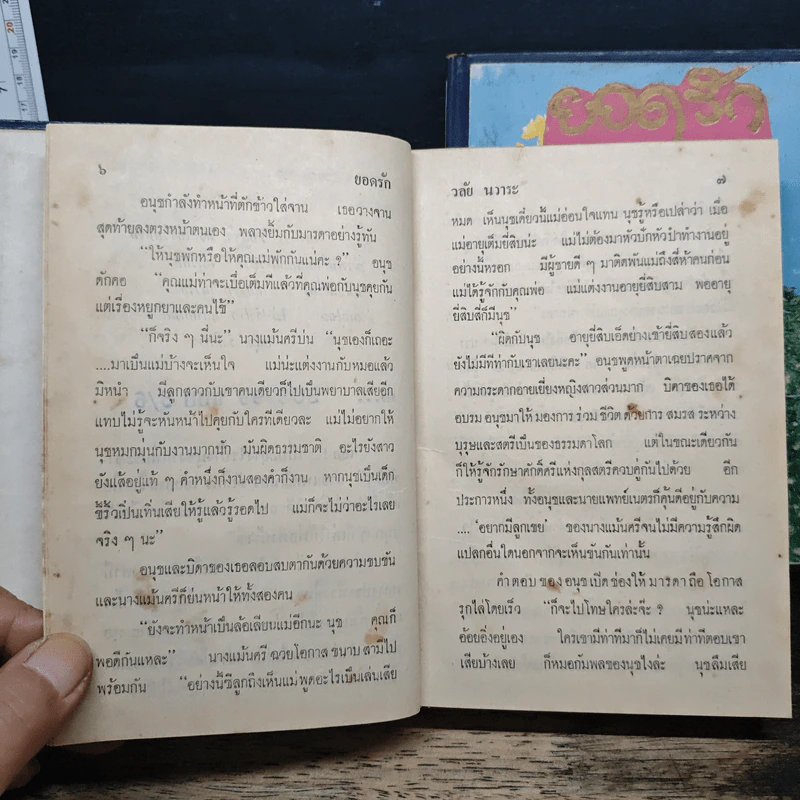 ยอดรัก
๖
ยอดรัก
อนุชกำลังทำหน้าที่ตักข้าวใส่จาน เธอวางจาน
สุดท้ายลงตรงหน้าตนเอง พลางยิ้มกับมารดาอย่างรู้ทัน
“ให้นุชพักหรือให้คุณแม่พักกันแน่คะ ?” อนุช
ดักคอ “คุณแม่ท่าจะเบื่อเต็มทีแล้วที่คุณพ่อกับนุชคุยกัน
แต่เรื่องหยูกยาและคนไข้”
“ก็จริง ๆ นี่นะ” นางแม้นศรีบ่น “นุชเองก็เถอะ
....มาเป็นแม่บ้างจะเห็นใจ แม่น่ะแต่งงานกับหมอแล้ว
มิหนำ มีลูกสาวกับเขาคนเดียวก็ไปเป็นพยาบาลเสียอีก
แทบไม่รู้จะหันหน้าไปคุยกับใครทีเดียวละ แม่ไม่อยากให้
นุชหมกมุ่นกับงานมากนัก มันผิดธรรมชาติ อะไรยังสาว
ยังแส้อยู่แท้ ๆ คำหนึ่งก็งานสองคำก็งาน หากนุชเป็นเด็ก
ขี้ริ้วเปิ่นเทิ่นเสียให้รู้แล้วรู้รอดไป แม่ก็จะไม่ว่าอะไรเลย
จริง ๆ นะ”
อนุชและบิดาของเธอลอบสบตากันด้วยความขบขัน
และนางแม้นศรีก็ย่นหน้าให้ทั้งสองคน
“ยังจะทำหน้าเป็นล้อเลียนแม่อีกนะ นุช คุณก็
พอดีกันแหละ” นางแม้นศรี ฉวยโอกาส ขนาบ สามีไป
พร้อมกัน “อย่างนี้ซีลูกถึงเห็นแม่พูดอะไรเป็นเล่นเสีย
วลัย นวาระ
๗
หมด เห็นนุชเดี๋ยวนี้แม่อ่อนใจแทน นุชรู้หรือเปล่าว่า เมื่อ
แม่อายุเต็มยี่สิบน่ะ แม่ไม่ต้องมาหัวปักหัวปำทำงานอยู่
อย่างนี้หรอก มีผู้ชายดี ๆ มาติดพันแม่ถึงสี่ห้าคนก่อน
แม่ได้รู้จักกับคุณพ่อ แม่แต่งงานอายุยี่สิบสาม พออายุ
ยี่สิบสี่ก็มีนุช”
“ผิดกับนุช อายุยี่สิบเอ็ดย่างเข้ายี่สิบสองแล้ว
ยังไม่มีทีท่ากับเขาเลยนะคะ” อนุชพูดหน้าตาเฉยปราศจาก
ความกระดากอายเยี่ยงหญิงสาวส่วนมาก บิดาของเธอได้
อบรม อนุชมาให้ มองการ ร่วม ชีวิต ด้วยการ สมรส ระหว่าง
บุรุษและสตรีเป็นของธรรมดาโลก แต่ในขณะเดียวกัน
ก็ให้รู้จักรักษาศักดิ์ศรีแห่งกุลสตรีควบคู่กันไปด้วย อีก
ประการหนึ่ง ทั้งอนุชและนายแพทย์เนตรก็คุ้นดีอยู่กับความ
.... ‘อยากมีลูกเขย’ ของนางแม้นศรีจนไม่มีความรู้สึกผิด
แปลกอื่นใดนอกจากจะเห็นขันกันเท่านั้น
คำ ตอบ ของ อนุช เปิด ช่องให้ มารดา ถือ โอกาส
รุกไล่โดยเร็ว “ก็จะไปโทษใครล่ะจ๊ะ ? นุชน่ะแหละ
อ้อยอิ่งอยู่เอง ใครเขามีท่าทีมาก็ไม่เคยมีท่าทีตอบเขา
เสียบ้างเลย ก็หมอกัมพลของนุชไงล่ะ นุชลืมเสีย